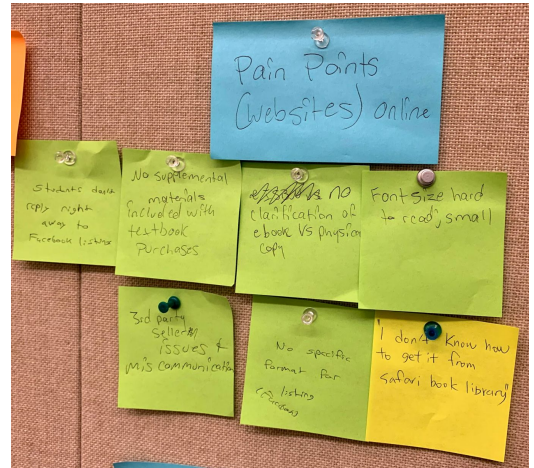 Pain Points
(websites) online
Students don't
reply right
away to
Facebook listing
No supplemental
materials
included with
textbook
Purchases
no
clarification of
ebook VS physical
copy
Font size hard
to read, small
3rd party
seller
issues &
miscommunication
No specific
format for
listing
"I don't know how
to get it from
safari book library"